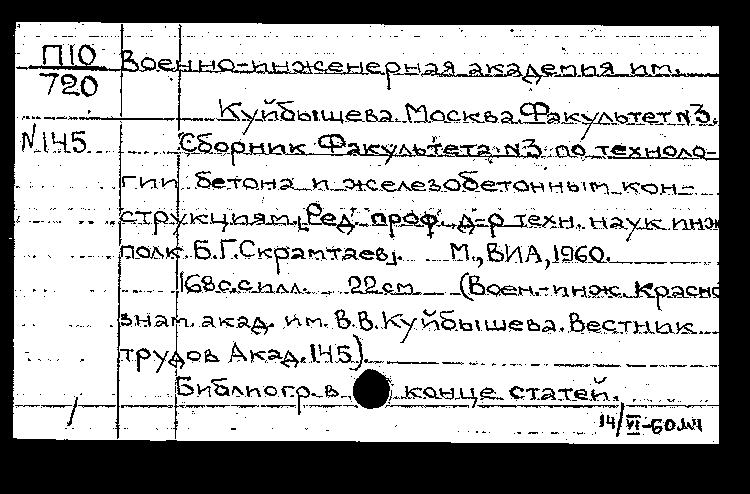 П10
720
Военно-инженерная академия им.
Куйбышева. Москва. Факультет N3.
N145
Сборник Факультета N3 по техноло-
гии бетона и железобетонным кон-
струкциям. [Ред. проф. д-р техн. наук инж
полк. Б.Г. Скрамтаев]. М., ВИА, 1960.
168 с. с илл. 22 см (Воен.-инж. Красно
знам. акад. им. В.В. Куйбышева. Вестник
трудов Акад. 145).
Библиогр. в конце статей.
14/VI-60